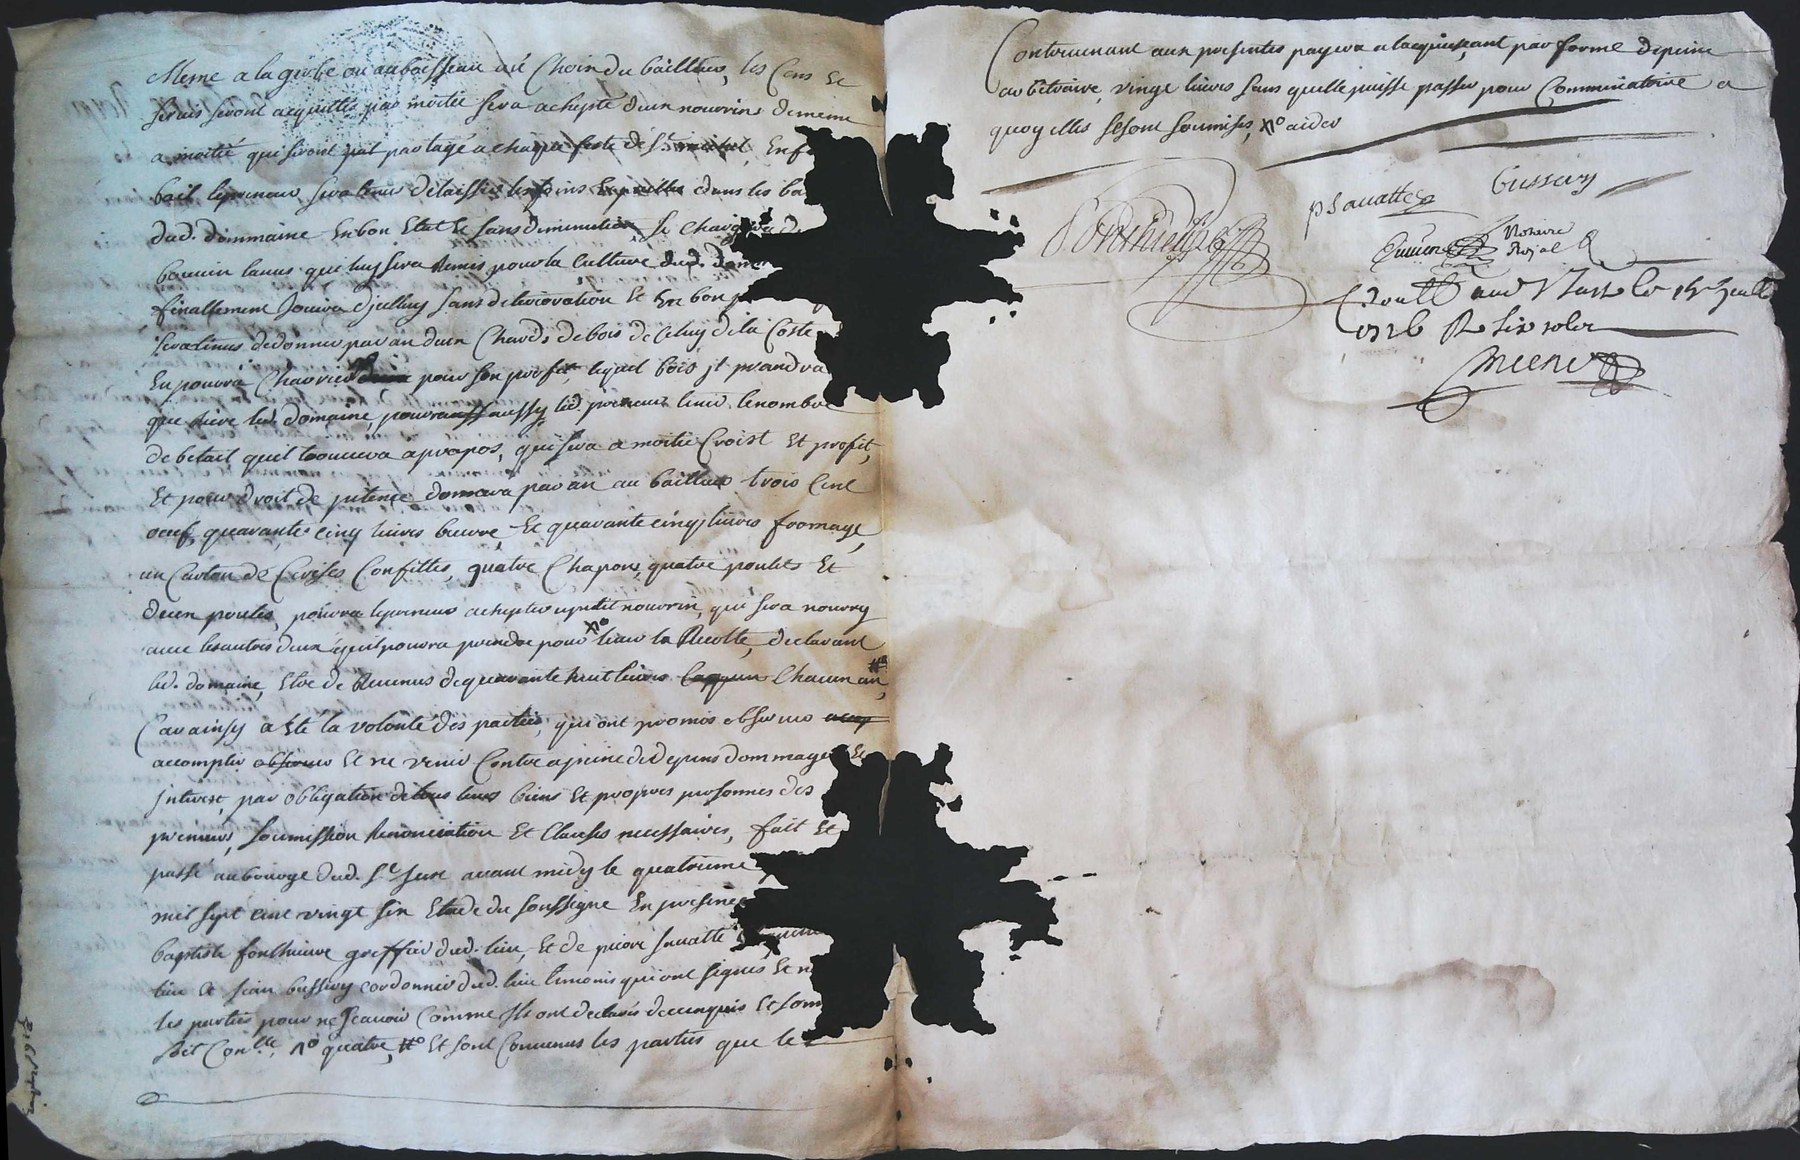 Meme a la gerbe ou au boisseau au Choix du bailleur, les Cens et
servis seront acquittés par moitié sera achepté deux nourrins de meme
a moitié qui seront partagé a chaque feste de St michel, En fin
bail le preneur sera tenu de laisser les foins Et pailles dans les ba
dud. dommaine En bon Etat Et sans diminution, Se chargera d
bouvin lanus qui luy sera Remis pour la Culture dud. doma
finallement Jouira d'icelluy sans deterioration Et En bon p
sera tenus de donner par an deux Chards de bois de Celuy de la Coste
En pourra Charrier pour son profit, lequel bois jl prandra
que Rière led. domaine, pourra aussy led. preneur tenir le nombre
de betail quel trouvera apropos, qui sera a moitié Croist Et profit,
Et pour droit de pitence donnera par an au bailleur trois Cent
oeuf, quarante cinq livres beurre, Et quarante cinq livres fromage,
un Carton de Cerises Confittes, quatre Chapons, quatre poulets Et
deux poules, pourra le preneur achepter un petit nourrin, qui sera nourry
avec les autres deux qu'il pourra prendre pour lever la Recolte, declarant
led. domaine, Etre de Revenus de quarante huit livres Chacun an,
Car ainsy a Eté la volonté des parties, qui ont promis observer
accomplir observer Et ne venir Contre a peine de depens dommages Et
jnterest, par obligation de tous leurs biens Et propres personnes des
preneurs, soumission Renonciation Et Clauses necessaires, fait Et
passé au bourge dud. St Jure avant midy le quatrieme
mil sept cent vingt six Etude du soussigné En presence
baptiste fonthieure greffier dud. lieu, Et de pierre sauatte
lieu Et jean bussery cordonnier dud. lieu temoins qui ont signés, Et n
les parties pour ne scavoir Comme Ils ont declarés de ce enquis Et som
soit Con.lle, no quatre, Et sont Convenus les parties que le
Contrevenant aux presentes payera a l'acquiesçant par forme de peine
arbitraire, vingt livres sans quelle puisse passer pour Comminatoire a
quoy elles se sont soumises, no aider
Fonthieure
psauatte
bussery
Notaire
Royal
1726 R six solz